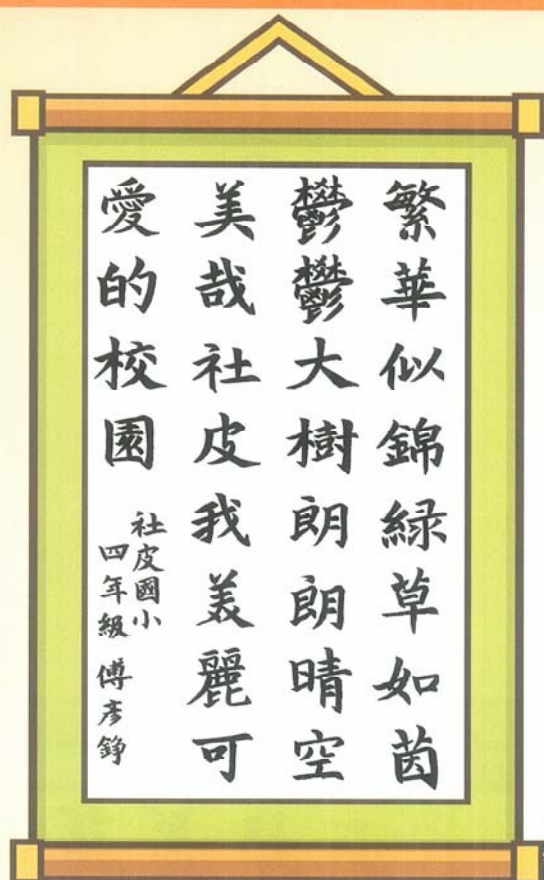 繁華似錦綠草如茵
鬱鬱大樹朗朗晴空
美哉社皮我美麗可
愛的校園
社皮國小
四年級 傅彥錚